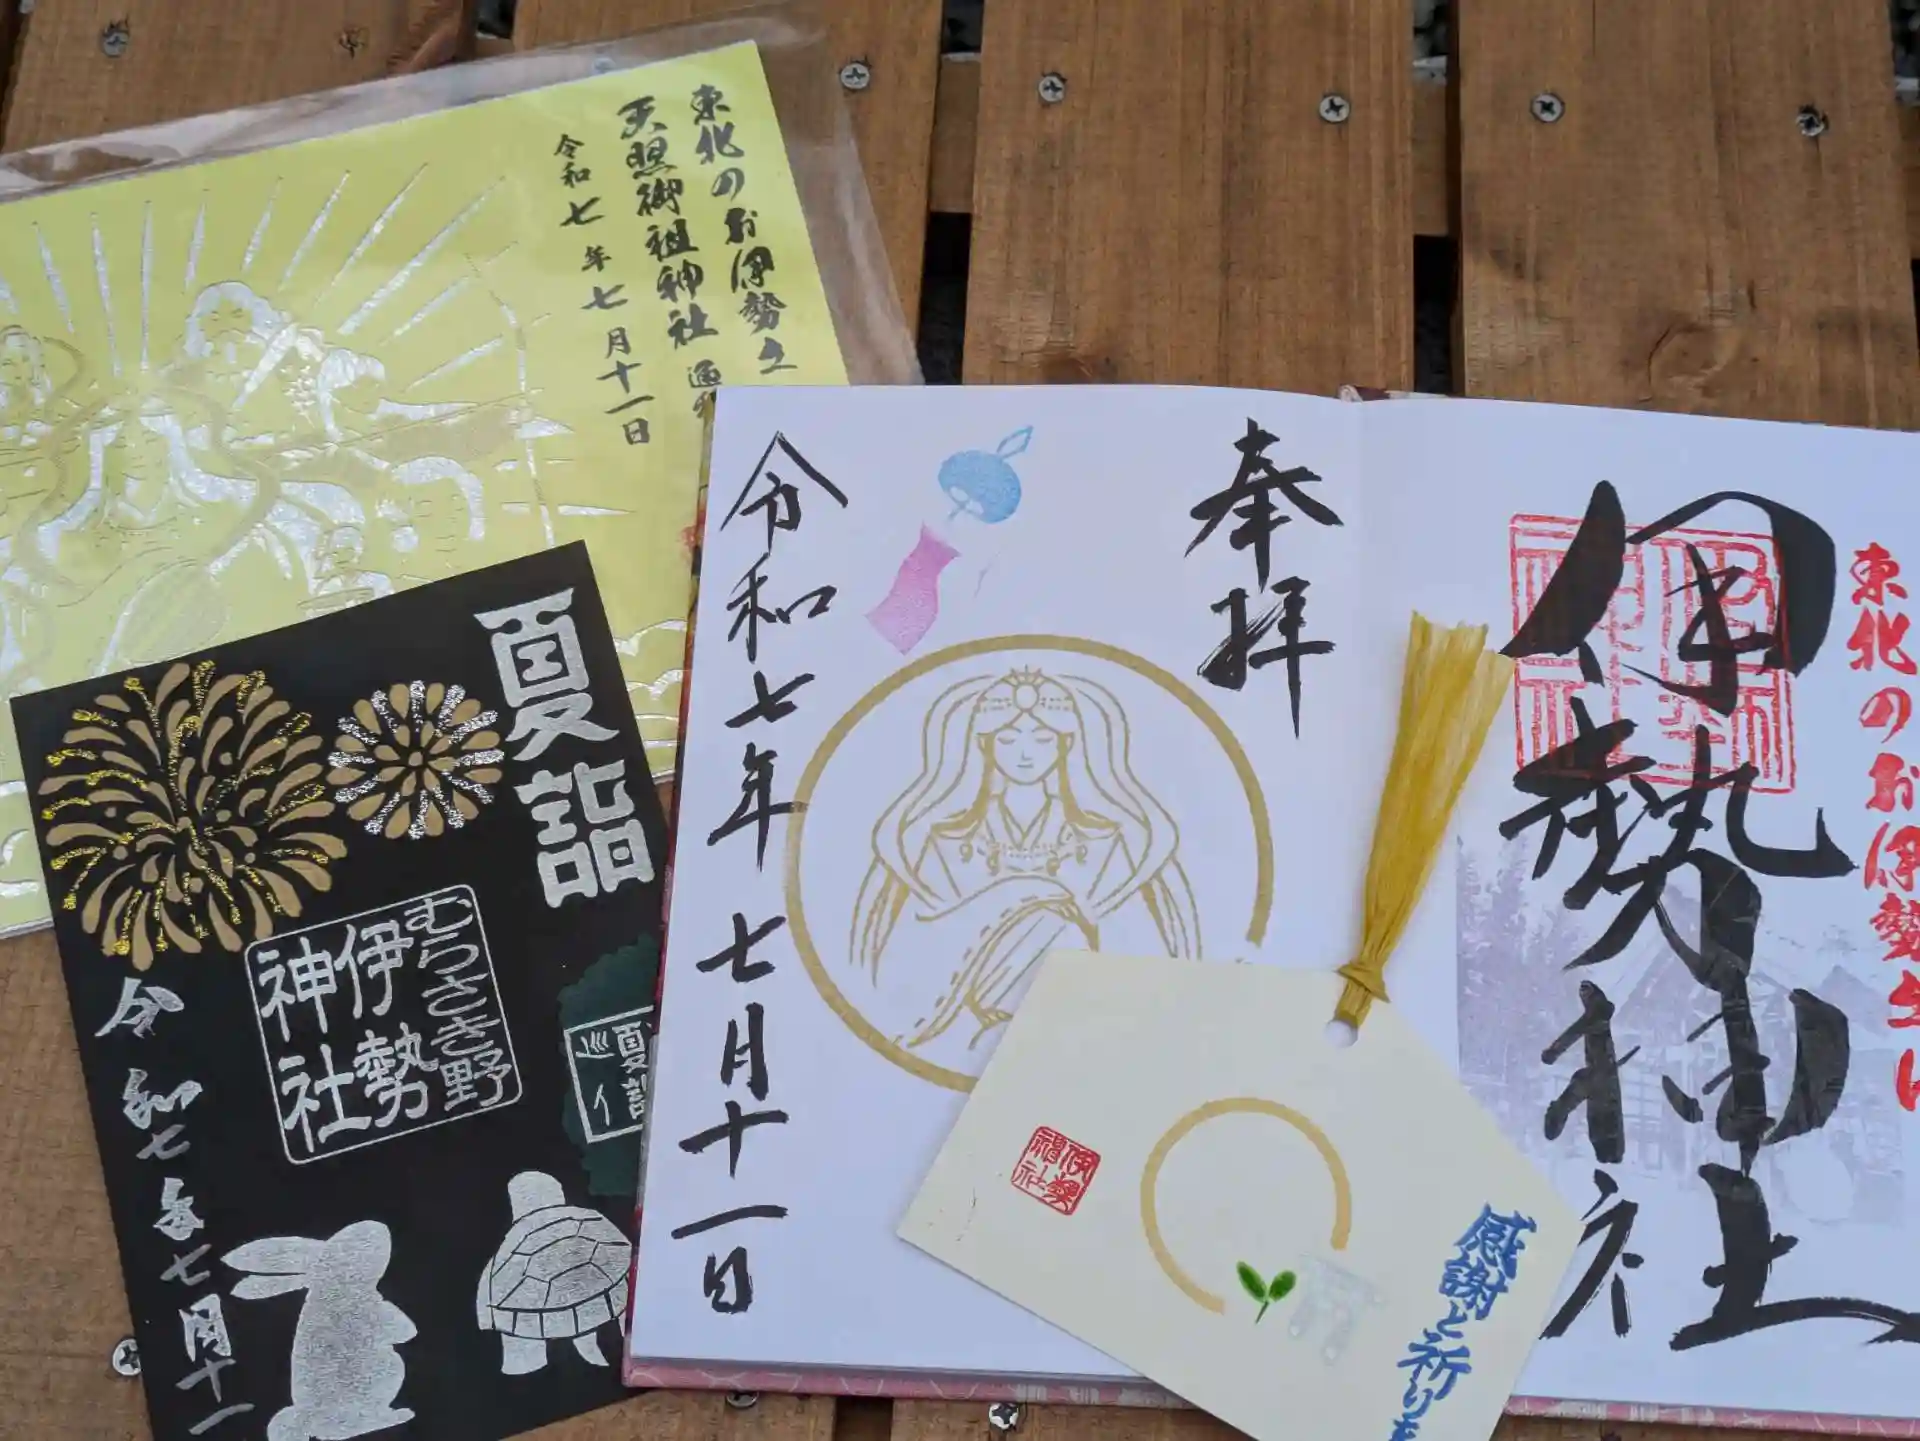 東北のお伊勢
天照御祖神社
令和七年七月十一日
夏詣
むらさき野
伊勢
神社
夏詣
令和七年七月十一
奉拝
令和七年七月十一日
東北のお伊勢
伊勢神社
感謝と祈り